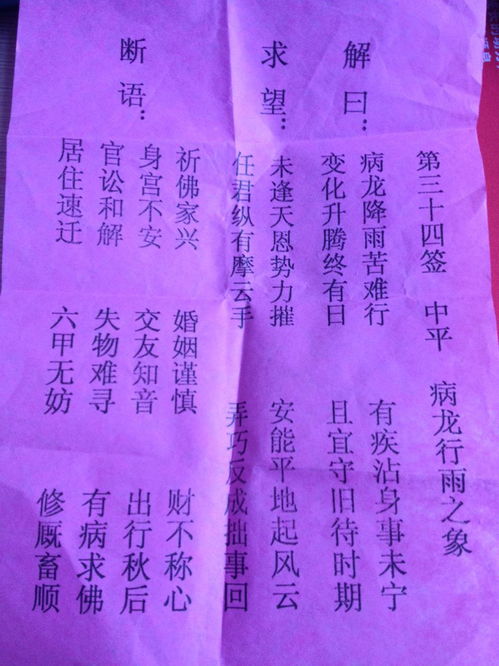 第三十四签 中平 病龙行雨之象
解曰：
病龙降雨苦难行 有疾沾身事未宁
变化升腾终有日 且宜守旧待时期
求望：
未逢天恩势力摧 安能平地起风云
任君纵有摩云手 弄巧反成拙事回
断语：
祈佛家兴 婚姻谨慎 财不称心
身宫不安 交友知音 出行秋后
官讼和解 失物难寻 有病求佛
居住速迁 六甲无妨 修厩畜顺